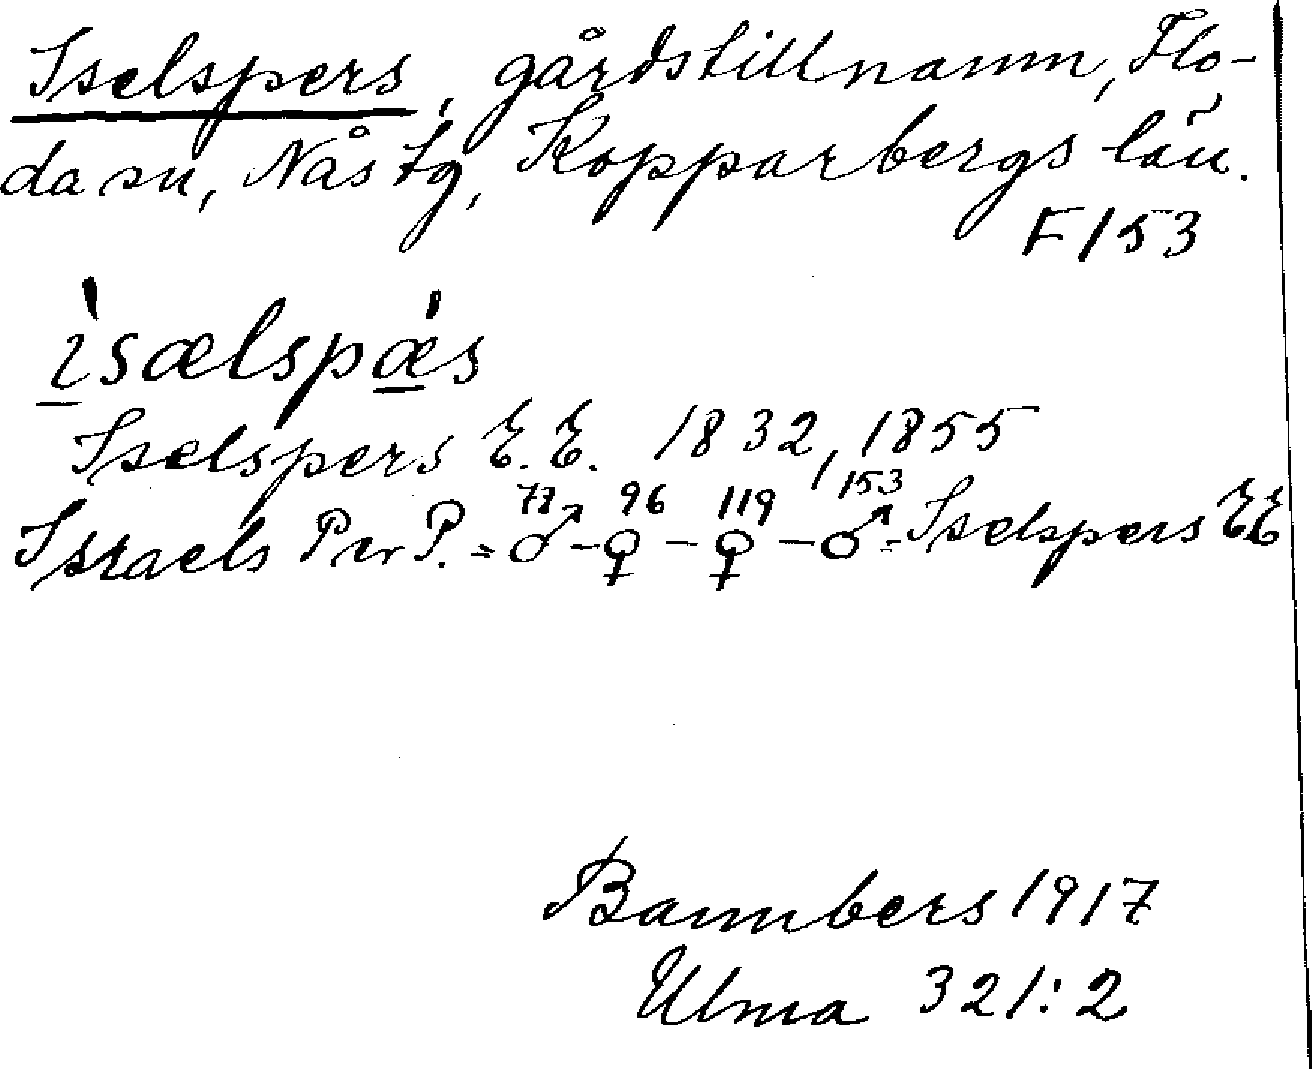 Iselspers, gårdstillnamn, Flo-
da sn, Nås tg, Kopparbergs län.
F153
ìsælspǽs
Iselspers E.E. 1832, 1855
77 96 119 153
Israels Per P. = ♂ - ♀ - ♀ - ♂ = Iselspers EE
Bannbers 1917
Ulma 321:2